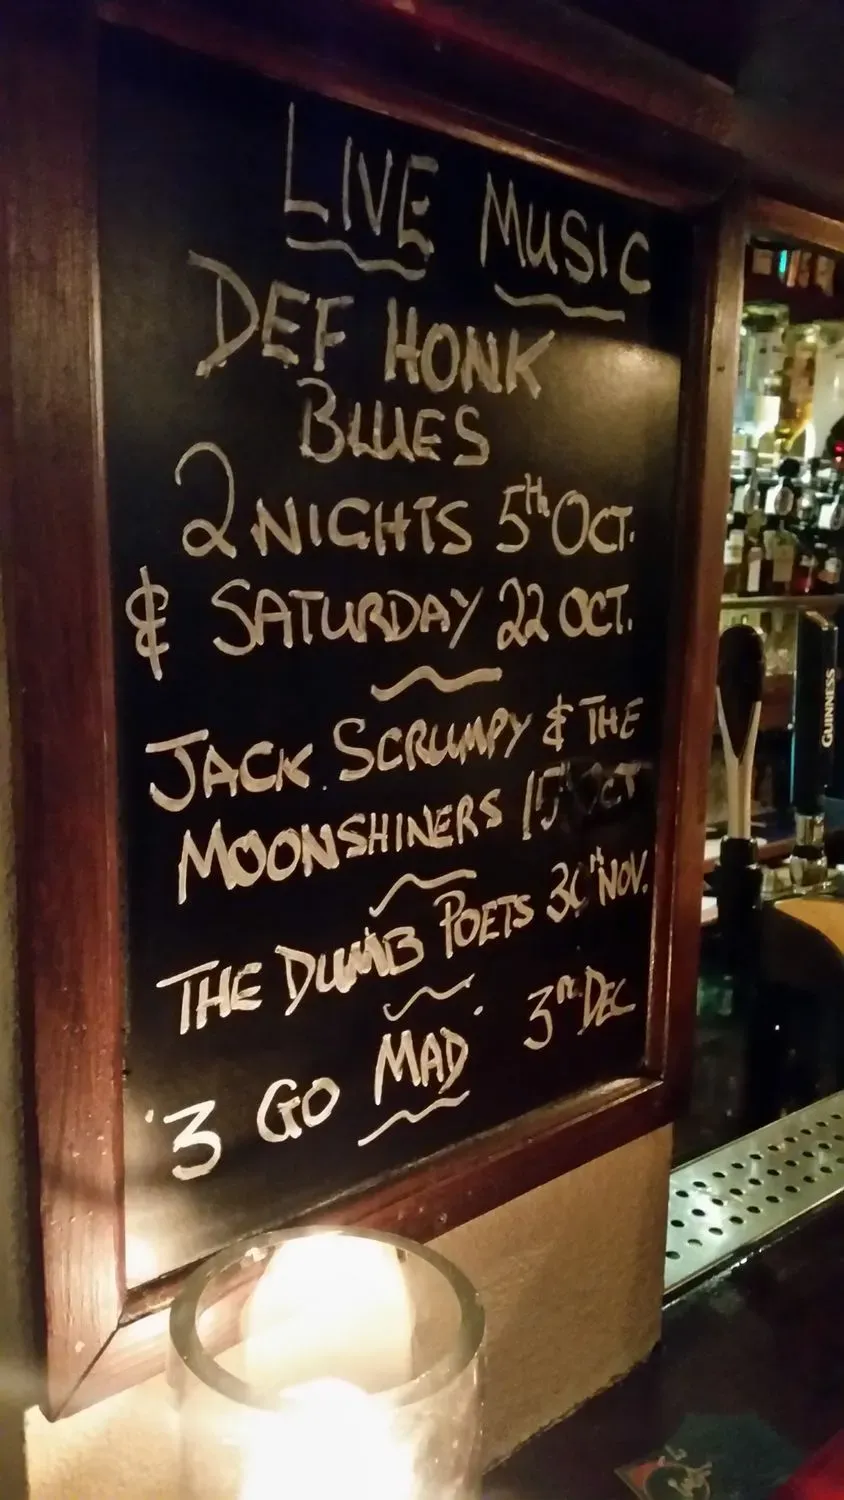 LIVE MUSIC
DEF HONK
BLUES
2 NIGHTS 5th OCT.
& SATURDAY 22 OCT.
JACK SCRUMPY & THE
MOONSHINERS 15 OCT
THE DUMB POETS NOV.
'3 GO MAD' 3rd DEC
GUINNESS